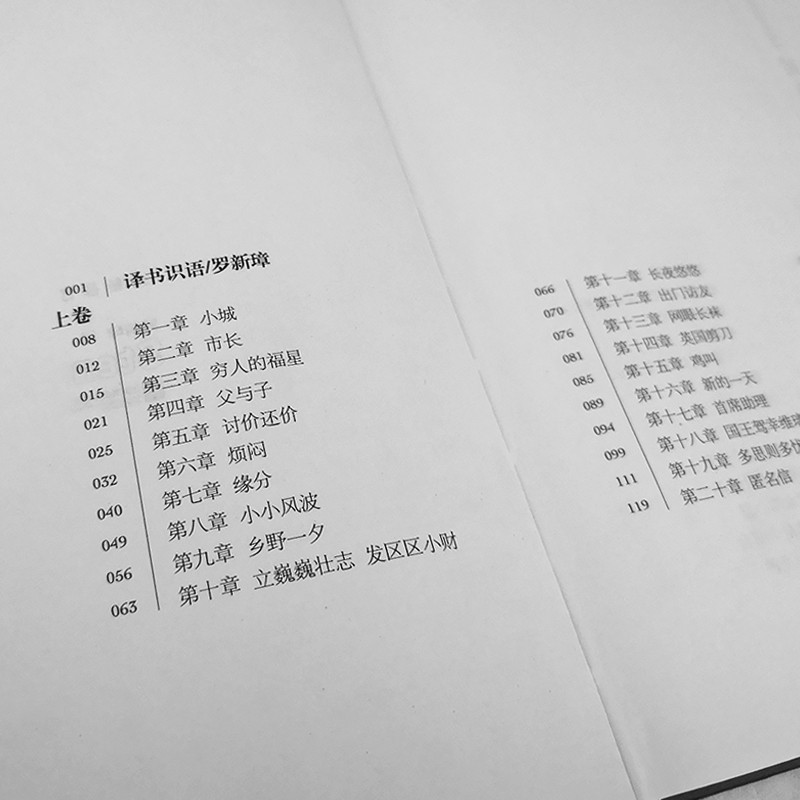 001 译书识语/罗新璋
上卷
008 第一章 小城
012 第二章 市长
015 第三章 穷人的福星
021 第四章 父与子
025 第五章 讨价还价
032 第六章 烦闷
040 第七章 缘分
049 第八章 小小风波
056 第九章 乡野一夕
063 第十章 立巍巍壮志 发区区小财
066 第十一章 长夜悠悠
070 第十二章 出门访友
076 第十三章 网眼长袜
081 第十四章 英国剪刀
085 第十五章 鸡叫
089 第十六章 新的一天
094 第十七章 首席助理
099 第十八章 国王驾幸维
111 第十九章 多思则多
119 第二十章 匿名信